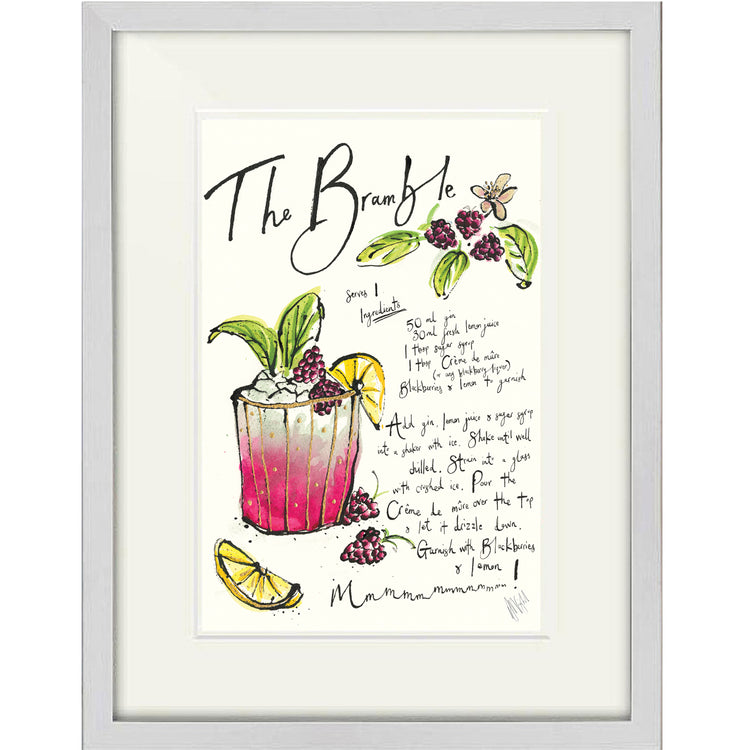 The Bramble
Serves 1
Ingredients
50 ml gin
30ml fresh lemon juice
1 tbsp sugar syrup
1 tbsp Crème de mûre
(or any blackberry liqueur)
Blackberries & lemon to garnish
Add gin, lemon juice & sugar syrup
into a shaker with ice. Shake until well
chilled. Strain into a glass
with crushed ice. Pour the
Crème de mûre over the top
& let it drizzle down.
Garnish with Blackberries
& lemon
Mmmmmmmmmmm!